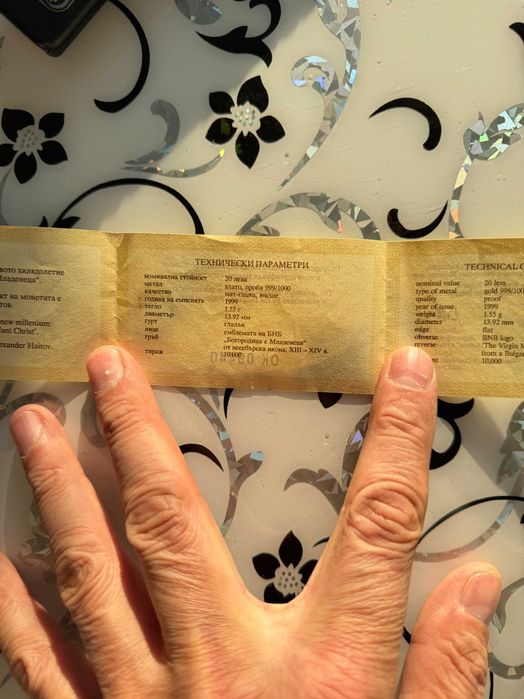 ВОТО ХИЛЯДОЛЕТИЕ
Младенеца".
кт на монетата е
тов.
new millenium:
ant Christ'.
exander Haitov.
ТЕХНИЧЕСКИ ПАРАМЕТРИ
номинална стойност 20 лева
метал злато, проба 999/1000
качество мат-гланц, висше
година на емисията 1999
тегло 1.55 г
диаметър 13.92 мм
гурт гладък
лице емблемата на БНБ
гръб „Богородица с Младенеца"
от несебърска икона, XIII – XIV в.
тираж 10 000
TECHNICAL
nominal value 20 leva
type of metal gold 999/1000
quality proof
year of issue 1999
weight 1.55 g
diameter 13.92 mm
edge flat
obverse BNB logo
reverse 'The Virgin
from a Bulga
10,000